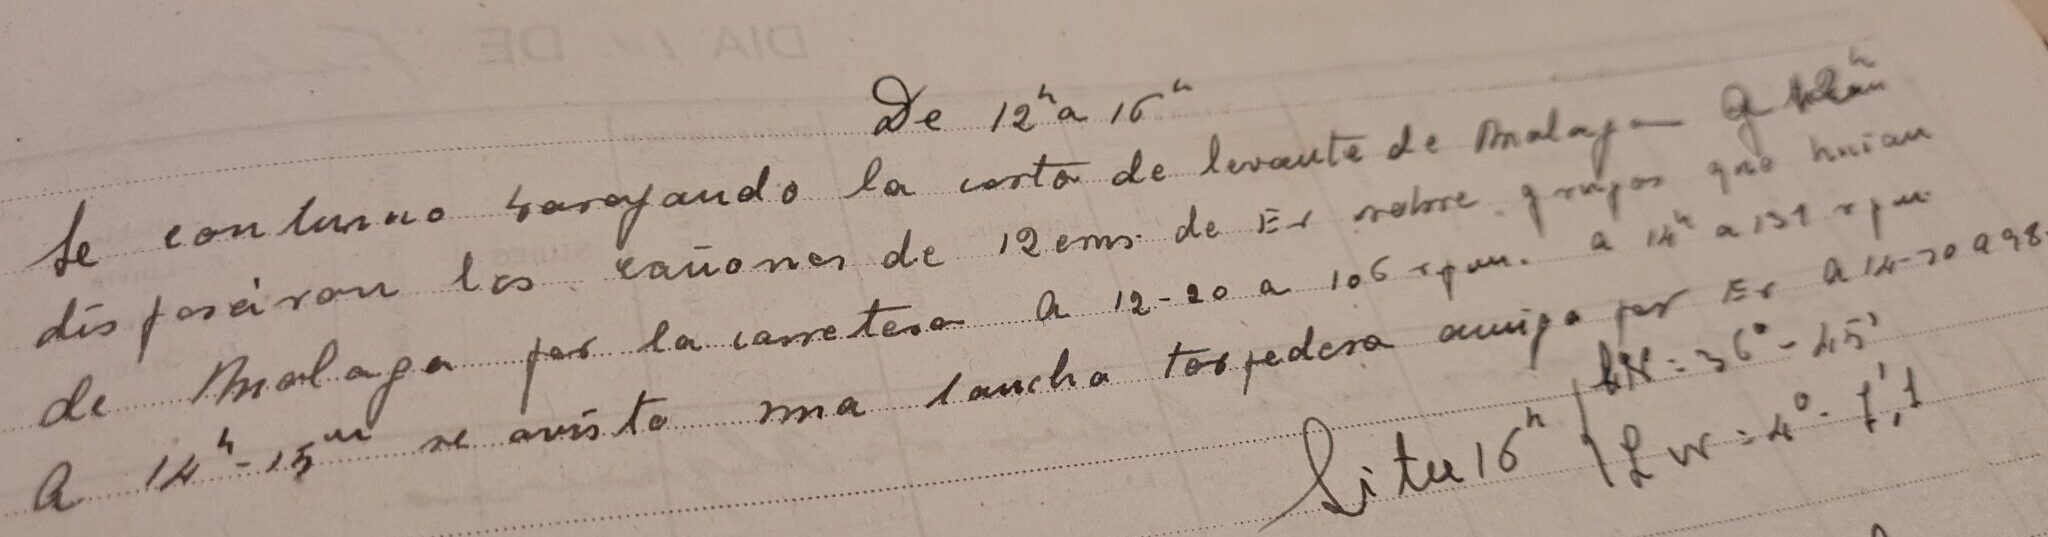 De 12ʰ a 16ʰ
Se continuo barajando la costa de levante de Malaga
dispararon los cañones de 12 cms. de Er sobre grupos que huian
de Malaga por la carretera A 12-20 a 106 rpm. a 14ʰ a 131 rpm
A 14ʰ-15ᵐ se avisto una lancha torpedera amiga por Er A 14-20 a 98.
Situ 16ʰ
lN = 36°-45'
L W = 4°-1',1